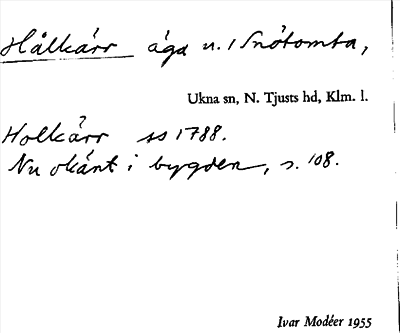 Hålkärr äga u. / Snötomta,
Ukna sn, N. Tjusts hd, Klm. l.
Holkärr ss 1788.
Nu okänt i bygden, s. 108.
Ivar Modéer 1955